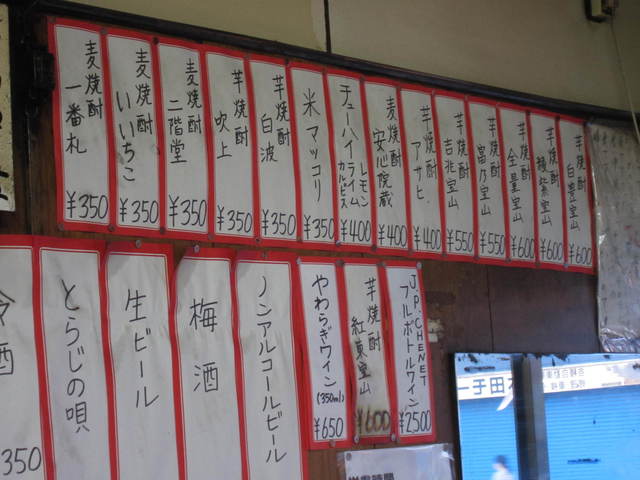 麦焼酎 一番札 ¥350
麦焼酎 いいちこ ¥350
麦焼酎 二階堂 ¥350
芋焼酎 吹上 ¥350
芋焼酎 白波 ¥350
米マッコリ ¥350
チューハイ レモン ライム カルピス ¥400
麦焼酎 安心院蔵 ¥400
芋焼酎 アサヒ ¥400
芋焼酎 吉兆宝山 ¥550
芋焼酎 富乃宝山 ¥550
芋焼酎 全量宝山 ¥600
芋焼酎 綾紫宝山 ¥600
芋焼酎 白豊宝山 ¥600
冷酒 350
とらじの唄
生ビール
梅酒
ノンアルコールビール
やわらぎワイン (350ml) ¥650
芋焼酎 紅東宝山 ¥600
J.P.CHENET フルボトルワイン ¥2500